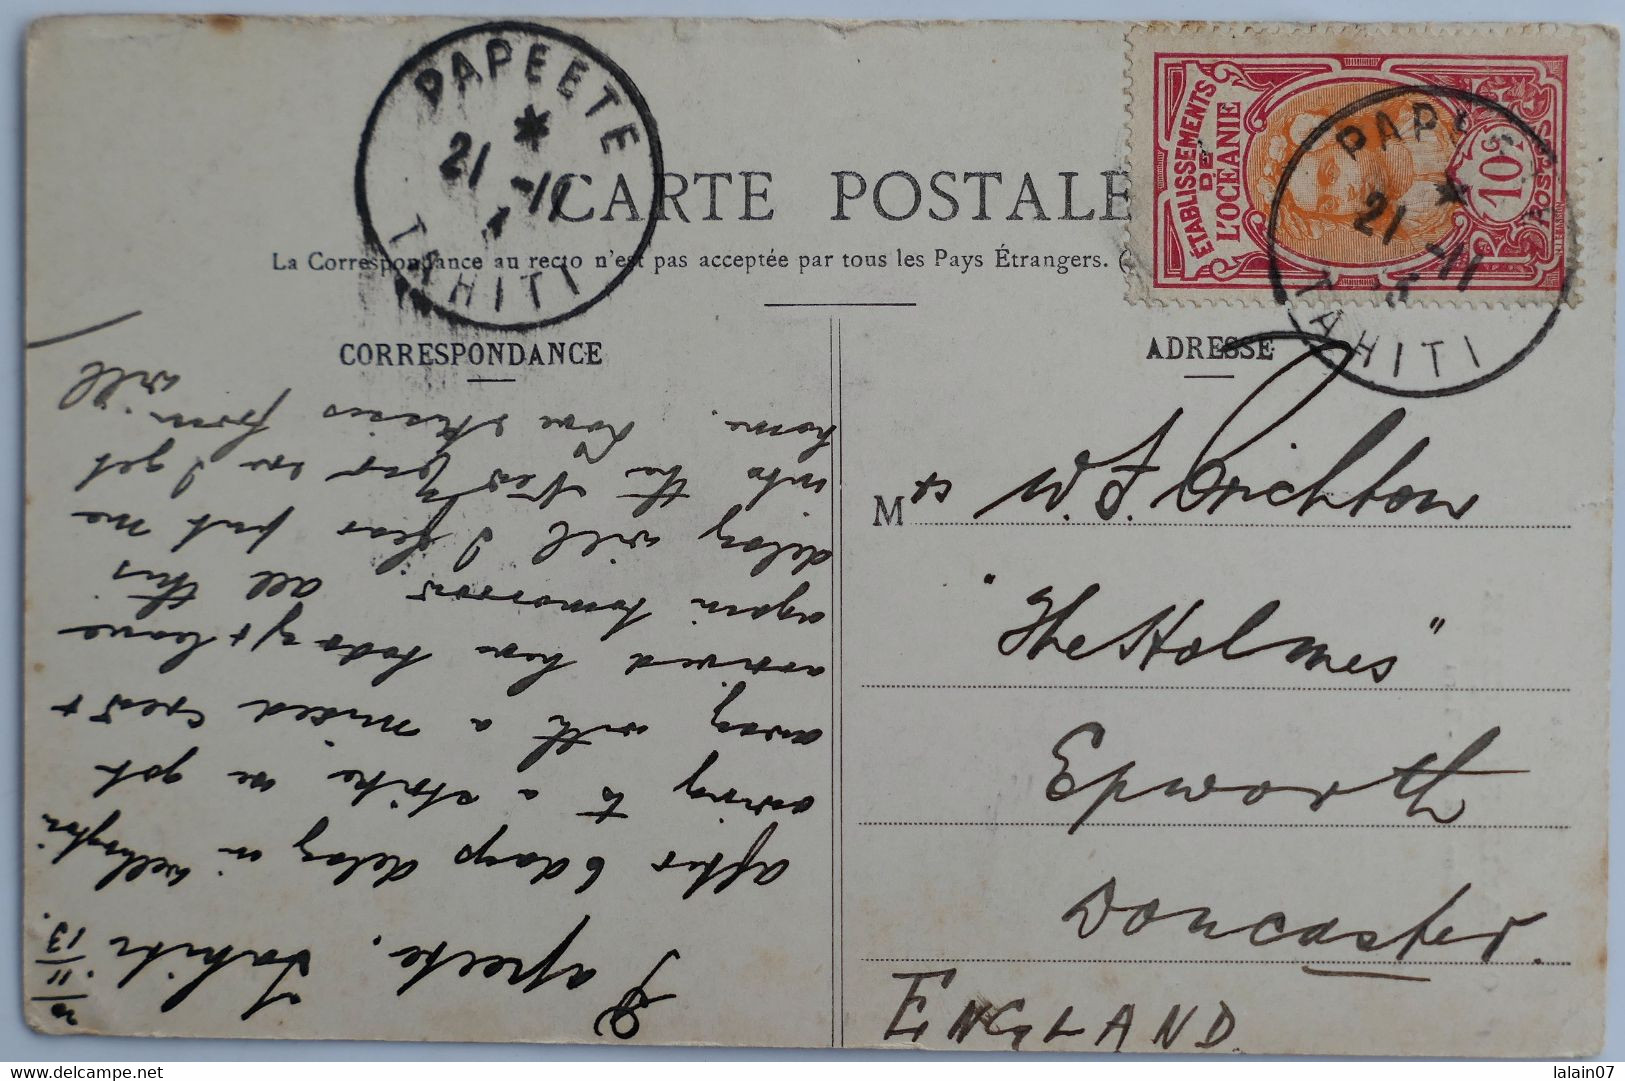 PAPEETE
21 -11
TAHITI
CARTE POSTALE
La Correspondance au recto n'est pas acceptée par tous les Pays Étrangers. (
CORRESPONDANCE
ÉTABLISSEMENTS
DE
L'OCÉANIE
10c
POSTES
PAPEETE
21 -11
13
TAHITI
ADRESSE
Mrs W. F. Crichton
"The Holmes"
Epworth
Doncaster.
ENGLAND
Papeete. Tahiti 11/13.
after 6 days delay in Wellington
owing to a strike we got
away with a mixed crew +
arrived here today + leave
again tomorrow all this
delay will I fear put me
into the New Year ere I get
home. Love & Kisses from will
lalain07
delcampe.net